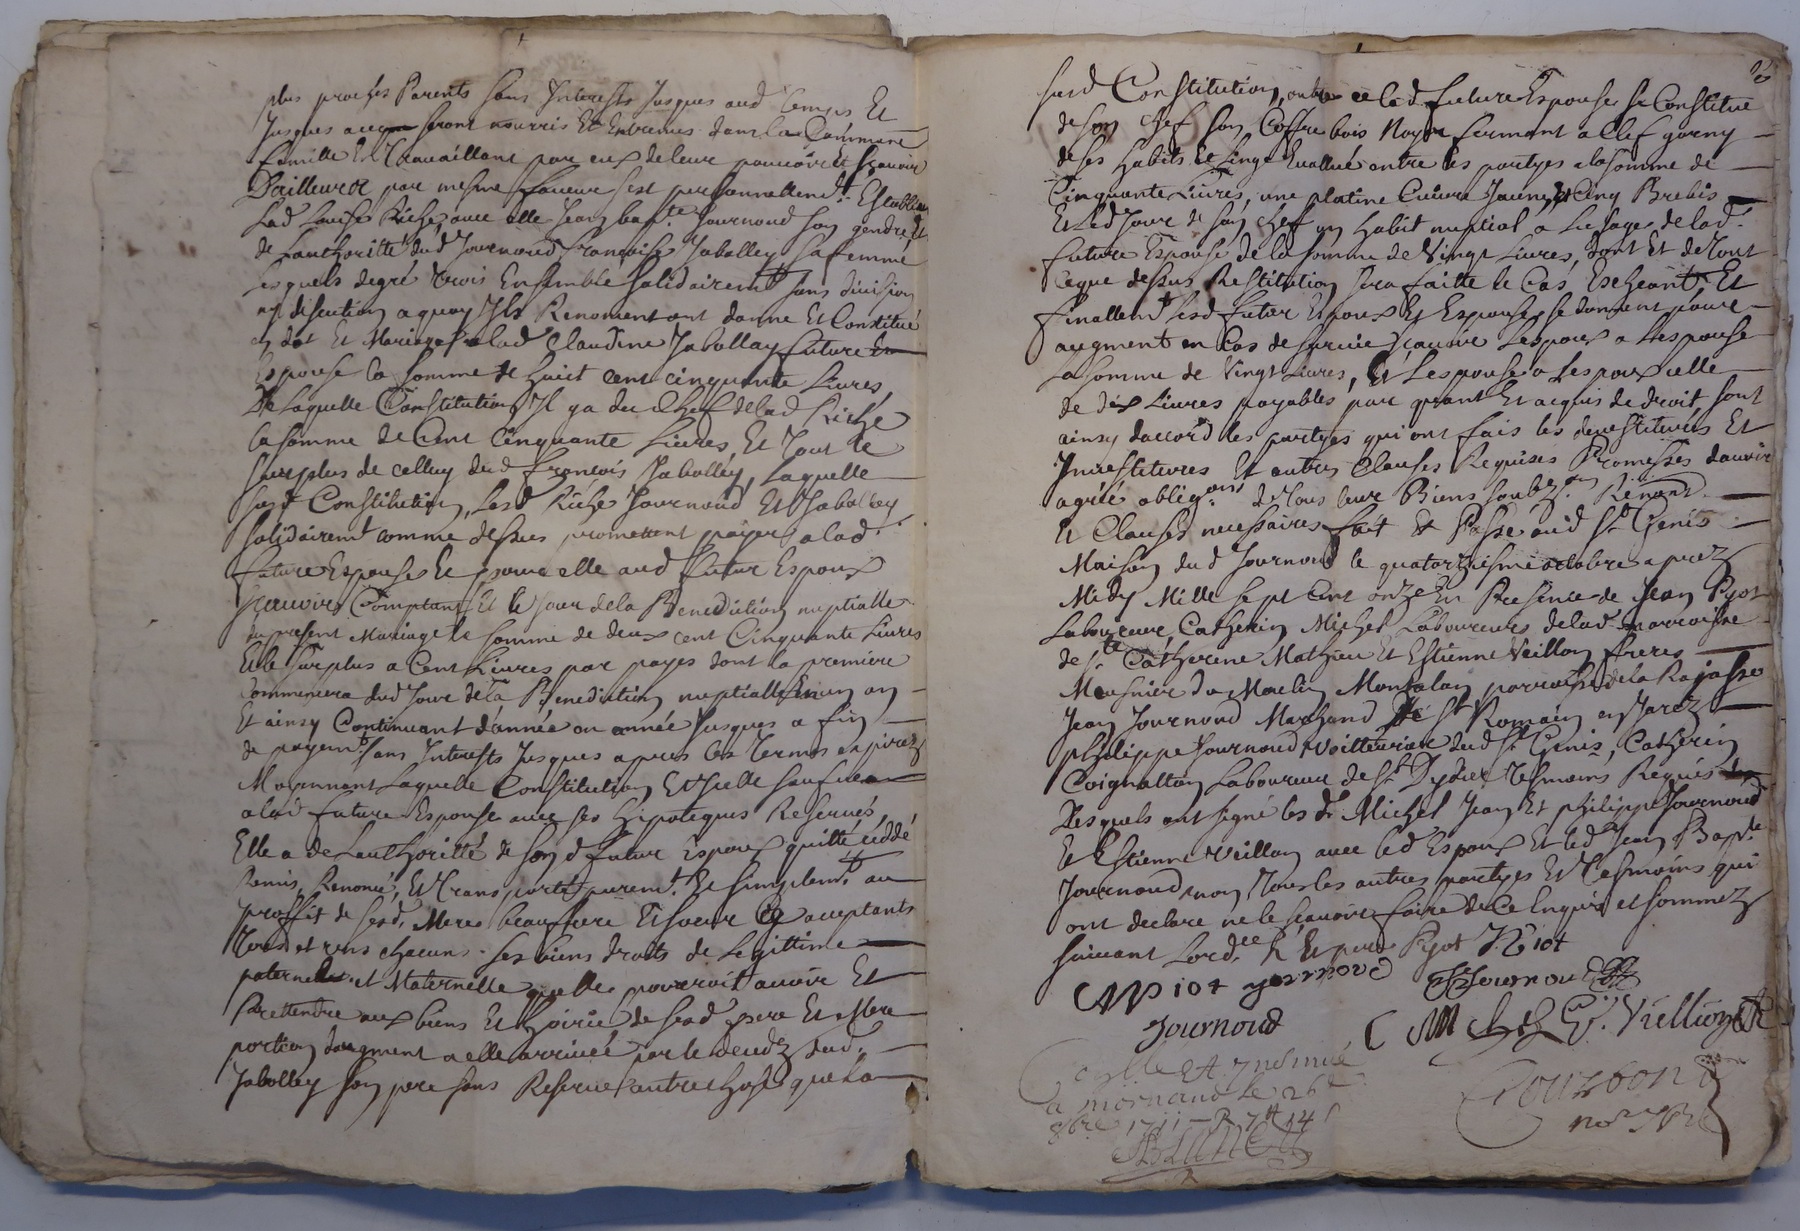 plus proches Parents sans Interests Jusques aud temps Et
Jusques a ce seront nourris Et Entrenus dans la Commune
famille En travaillant par eux de leur pouvoir et sçavoir
D'ailleurs par mesme faveur s'est personnellemt. Establie
Lad Louise Riche, avec elle Jean bapte. Journoud son gendre, Et
de Lauthoritté dud Journoud françoise Jabolley sa femme
Lesquels de gré trois Ensemble solidairemt sans division
ny discution a quoy Ils Renoncent ont donne Et Constitué
en dot Et Mariage a lad Claudine Jabollay future
Espouse la somme de huict cent cinquante Livres,
De laquelle Constitution Il y a du Chef de lad Riche
la somme de Cent Cinquante Livres Et Tout le
surplus de celluy dud françois Jabolley, Laquelle
susd Constitution, Lesd Riche Journoud Et Jabolley
solidairemt comme dessus promettent payer a lad.
future Espouse Et pour elle aud futur Espoux
sçauvoir Comptant Et le Jour de la Benediction nuptialle
du present Mariage la somme de deux cent Cinquante Livres
Et le surplus a Cent Livres par payes dont la premiere
Commencera dud Jour de la Benediction nuptialle En un an
Et ainsy Continuant d'année en année Jusques a fin
de payemt sans Interests Jusques apres les termes expirez
Moyennant Laquelle Constitution Et Icelle sauf
a lad future Espouse avec ses hipoteques Reservés
Elle a de Lauthoritté de sond futur Espoux quitté, cédé
Remis, Renoncé, Et transporté puremt. Et simplemt. au
proffit de sesd. Mere beaufrere Et soeur acceptants
Tous et uns chacuns ses biens droits de Legittime
paternelle et Maternelle quelle pourroit avoir Et
Prettendre aux biens Et hoirie de sesd pere Et Mere
portion daugment a elle arrivée par le decedz dud.
Jabolley son pere sans Reserve d'autre chose que La
susd Constitution, outre ce lad future Espouse se Constitue
de son Chef son Coffre bois Noyer fermant a Clef garny
de ses habits Et Linge Evallué entre les partyes a la somme de
Cinquante Livres, une platine Cuivre Jaune, Et Cinq Brebis
Et Led Jour de son chef un habit nuptial a Lusage de lad.
future Espouse de la somme de Vingt Livres, dont Et de tout
ce que dessus Restitution sera faitte le Cas Escheant, Et
finallemt Lesd futur Espoux Et Espouse se donnent pour
augment en Cas de survie sçauvoir Lespoux a Lespouse
La somme de Vingt Livres, Et Lespouse a Lespoux celle
de dix Livres payables par quant Et acquis de droit sont
ainsy daccord les partyes qui ont fais les devestitures Et
Investitures Et autres Clauses Requises Promesses d'auvoir
agréé obligons. de Tous leur Biens soubzon. Renont.
Et Clauses necessaires fait Et Passé aud St. Genis
Maison dud Journoud le quatorziesme octobre aprez
Midy Mille sept Cent onze En Presence de Jean Pyot
Laboureur, Catherin Michel Laboureurs de lad parroisse
de Ste Catherine Mathieu Et Estienne Veillon freres
Meusnier du Moulin Montalan parroisse de la Rajasse
Jean Journoud Marchand de St Romain en Jarez
Philippe Journoud Voitturier dud St Genis, Catherin
Coignallon Laboureur de St Dydier tesmoins Requis
Lesquels ont signé les d. Michel Jean Et philippe Journoud
Et Estienne Veillon avec led Espoux Et led Jean Bapte.
Journoud non Tous les autres partyes Et tesmoins qui
ont declare ne le sçauvoir faire de Ce Enquis et sommez
suivant Lordce Pyot
piot journoud Journoud
Journoud C M Veillion
Collé Et
a mornand le 26
8bre 1711 R 7tt 14 s
Gourdon
nore